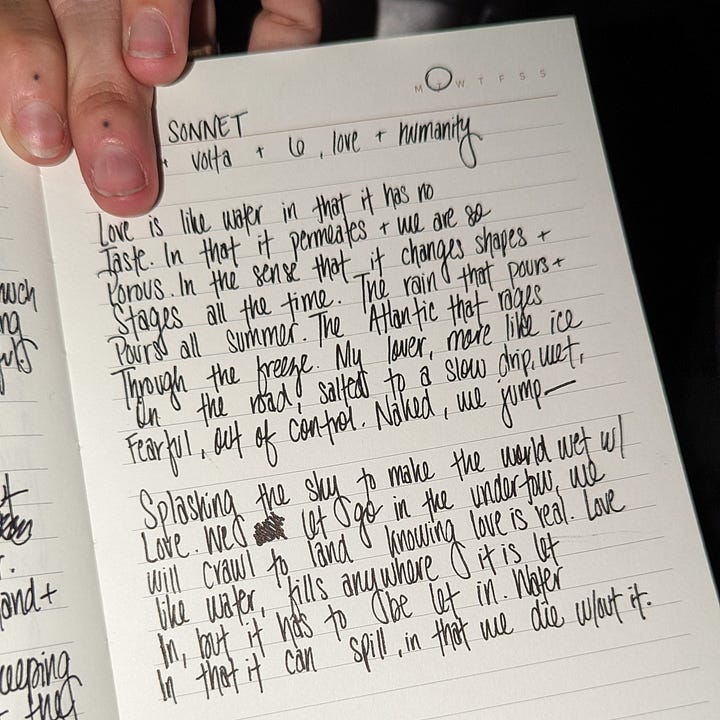 M T W T F S S
SONNET
+ volta + 6, love + humanity
Love is like water in that it has no
Taste. In that it permeates + we are so
Porous. In the sense that it changes shapes +
Stages all the time. The rain that pours +
Pours all summer. The Atlantic that rages
Through the freeze. My lover, more like ice
On the road, salted to a slow drip, wet,
Fearful, out of control. Naked, we jump—
Splashing the sky to make the world wet w/
Love. We let go in the undertow, we
will crawl to land knowing love is real. Love
like water, fills anywhere it is let
In, but it has to be let in. Water
In that it can spill, in that we die w/out it.
much
ng
and +
eeping
they